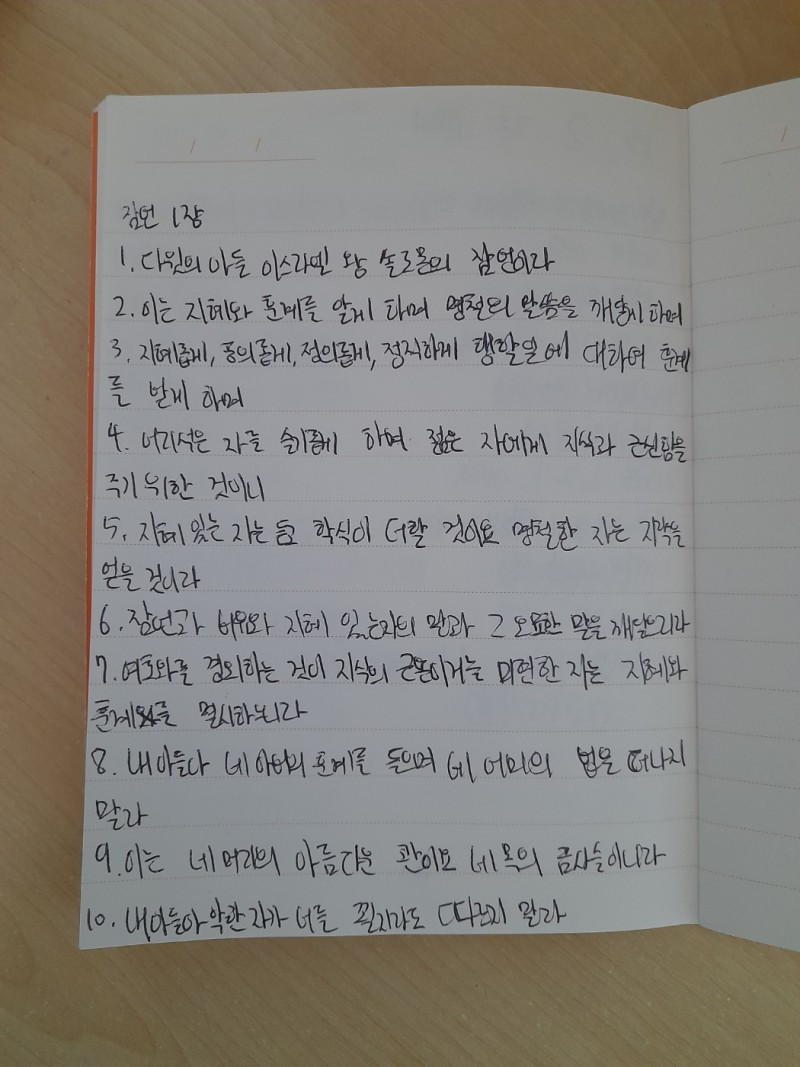 / /
잠언 1장
1. 다윗의 아들 이스라엘 왕 솔로몬의 잠언이라
2. 이는 지혜와 훈계를 알게 하며 명철의 말씀을 깨닫게 하며
3. 지혜롭게, 공의롭게, 정의롭게, 정직하게 행할일에 대하여 훈계
를 받게 하며
4. 어리석은 자를 슬기롭게 하며 젊은 자에게 지식과 근신함을
주기 위한 것이니
5. 지혜 있는 자는 듣고 학식이 더할 것이요 명철한 자는 지략을
얻을 것이라
6. 잠언과 비유와 지혜 있는자의 말과 그 오묘한 말을 깨달으리라
7. 여호와를 경외하는 것이 지식의 근본이거늘 미련한 자는 지혜와
훈계를 멸시하느니라
8. 내 아들아 네 아비의 훈계를 들으며 네 어미의 법을 떠나지
말라
9. 이는 네 머리의 아름다운 관이요 네 목의 금사슬이니라
10. 내 아들아 악한 자가 너를 꾈지라도 따르지 말라